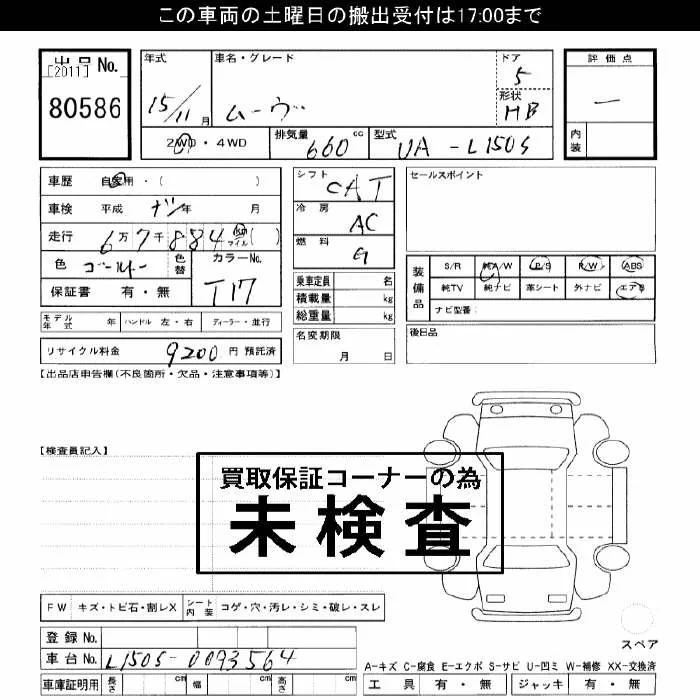 この車両の土曜日の搬出受付は17:00まで
出品 No.
[2011]
80586
年式 15/11 月
車名・グレード ムーヴ
ドア 5
形状 HB
評価点 一
内装
2WD・4WD
排気量 660 cc
型式 UA-L150S
車歴 自家用・( )
車検 平成 ナシ 年 月
走行 6万7千884 km マイル ( )
色 ゴールド 色替
カラーNo. T17
保証書 有・無
シフト CAT
冷房 AC
燃料 G
乗車定員 名
積載量 kg
総重量 kg
名変期限
月 日
セールスポイント
装備品
S/R 純A/W P/S P/W ABS
純TV 純ナビ 革シート 外ナビ エアB
ナビ型番:
後日品
モデル年式 年 ハンドル 左・右 ディーラー・並行
リサイクル料金 9200 円 預託済
【出品店申告欄(不良箇所・欠品・注意事項等)】
【検査員記入】
買取保証コーナーの為
未検査
FW キズ・トビ石・割レX シート内装 コゲ・穴・汚レ・シミ・破レ・スレ
スペア
登録No.
車台No. L150S-0093564
車庫証明用 長さ cm 幅 cm 高さ cm
A-キズ C-腐食 E-エクボ S-サビ U-凹ミ W-補修 XX-交換済
工具 有・無 ジャッキ 有・無